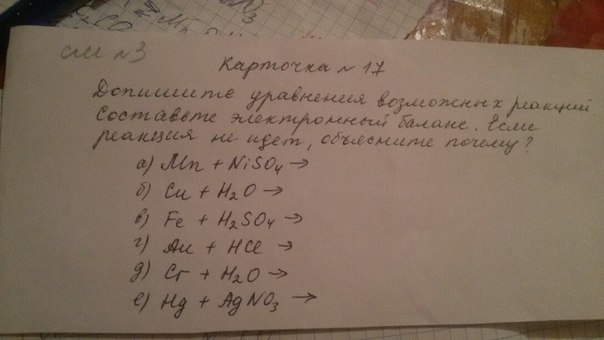 см №3
Карточка № 17
Допишите уравнения возможных реакций
Составьте электронный баланс. Если
реакция не идет, объясните почему?
а) Mn + NiSO₄ →
б) Cu + H₂O →
в) Fe + H₂SO₄ →
г) Au + HCl →
д) Cr + H₂O →
е) Hg + AgNO₃ →